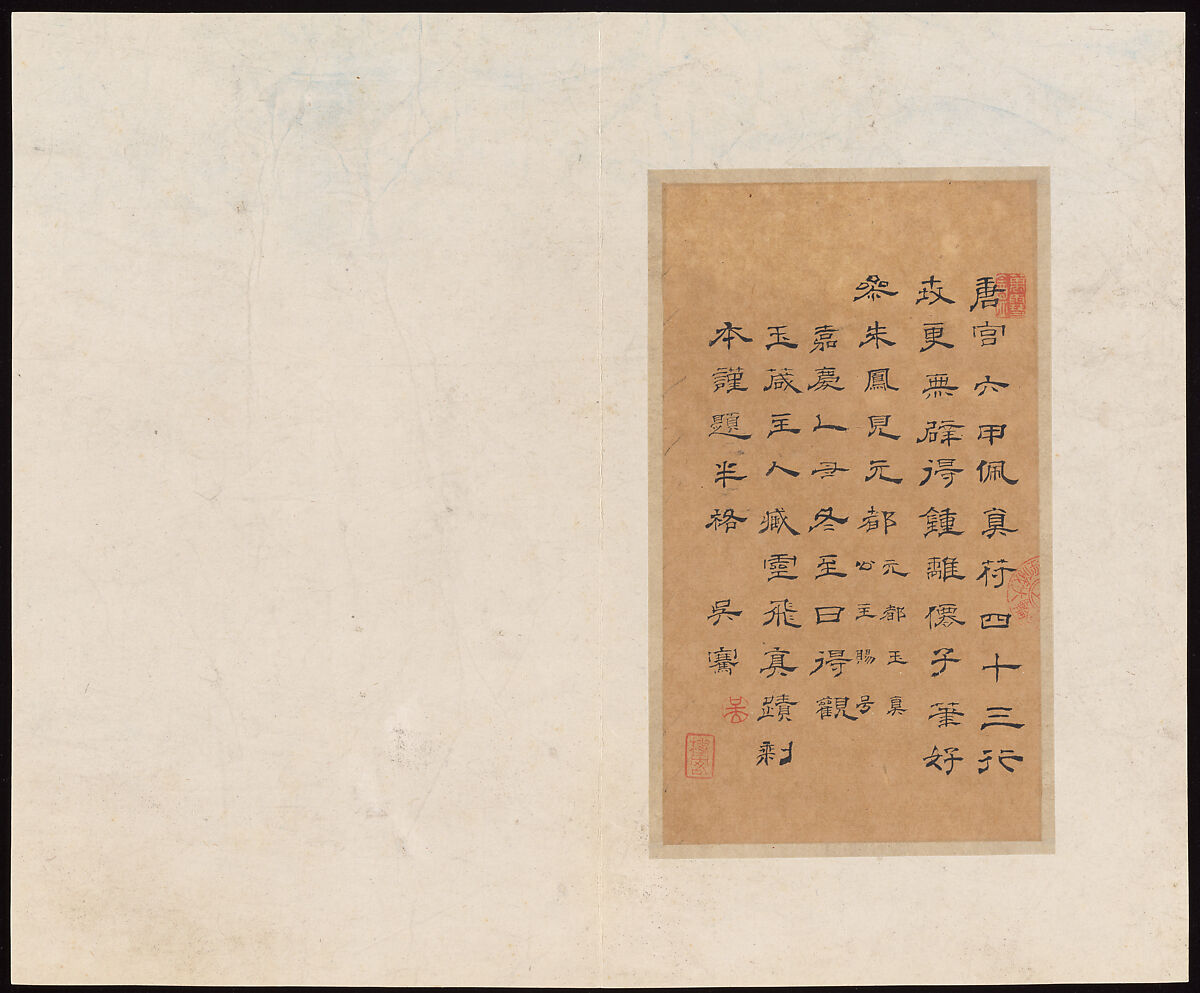 唐宮六甲佩真符四十三行
更無辟得鍾離僊子筆好
參朱鳳見元都 元都玉真
公主賜号
嘉慶乙丑冬至日得觀
玉葴主人臧靈飛真蹟剩
本謹題半格 吳騫